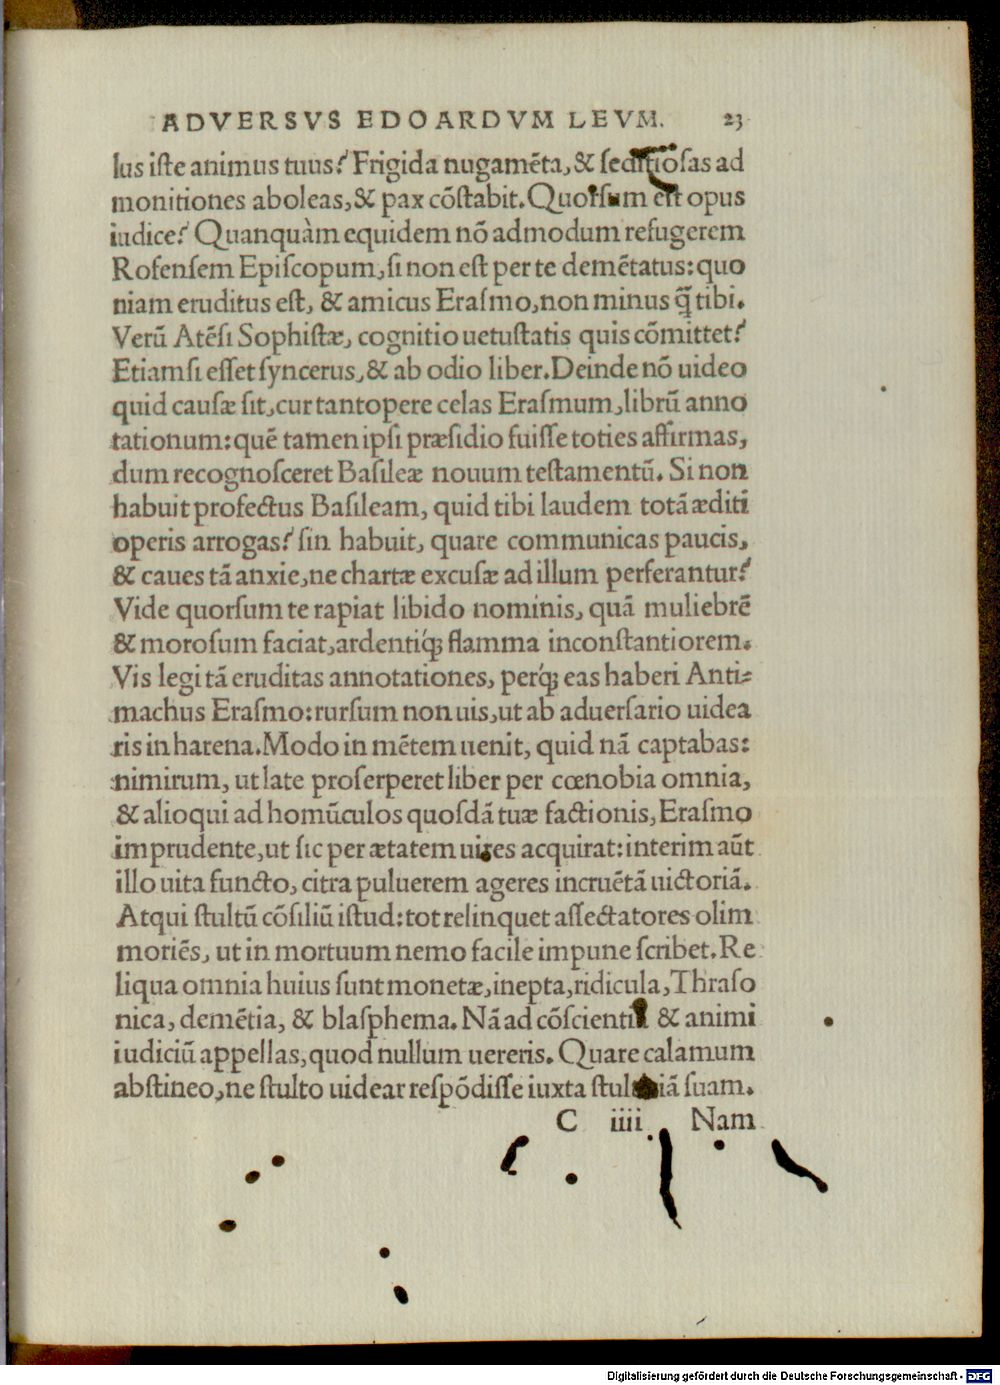 ADVERSVS EDOARDVM LEVM. 23
lus iſte animus tuus? Frigida nugamēta, & ſeditioſas ad
monitiones aboleas, & pax cōſtabit. Quorſum eſt opus
iudice? Quanquàm equidem nō admodum refugerem
Rofenſem Epiſcopum, ſi non eſt per te demētatus: quo
niam eruditus eſt, & amicus Eraſmo, non minus q̃ tibi.
Verū Atēſi Sophiſtæ, cognitio uetuſtatis quis cōmittet?
Etiamſi eſſet ſyncerus, & ab odio liber. Deinde nō uideo
quid cauſæ ſit, cur tantopere celas Eraſmum, librū anno
tationum: quē tamen ipſi præſidio fuiſſe toties affirmas,
dum recognoſceret Baſileæ nouum teſtamentū. Si non
habuit profectus Baſileam, quid tibi laudem totā æditi
operis arrogas? ſin habuit, quare communicas paucis,
& caues tā anxie, ne chartæ excuſæ ad illum perferantur?
Vide quorſum te rapiat libido nominis, quā muliebrē
& moroſum faciat, ardentiq́; flamma inconſtantiorem.
Vis legi tā eruditas annotationes, perq́; eas haberi Anti-
machus Eraſmo: rurſum non uis, ut ab aduerſario uidea
ris in harena. Modo in mētem uenit, quid nā captabas:
nimirum, ut late proſerperet liber per cœnobia omnia,
& alioqui ad homūculos quoſdā tuæ factionis, Eraſmo
imprudente, ut ſic per ætatem uires acquirat: interim aūt
illo uita functo, citra puluerem ageres incruētā uictoriā.
Atqui ſtultū cōſiliū iſtud: tot relinquet aſſectatores olim
moriēs, ut in mortuum nemo facile impune ſcribet. Re
liqua omnia huius ſunt monetæ, inepta, ridicula, Thraſo
nica, demētia, & blaſphema. Nā ad cōſcientiā & animi
iudiciū appellas, quod nullum uereris. Quare calamum
abſtineo, ne ſtulto uidear reſpōdiſſe iuxta ſtultitiā ſuam.
C iiii Nam
Digitalisierung gefördert durch die Deutsche Forschungsgemeinschaft - DFG